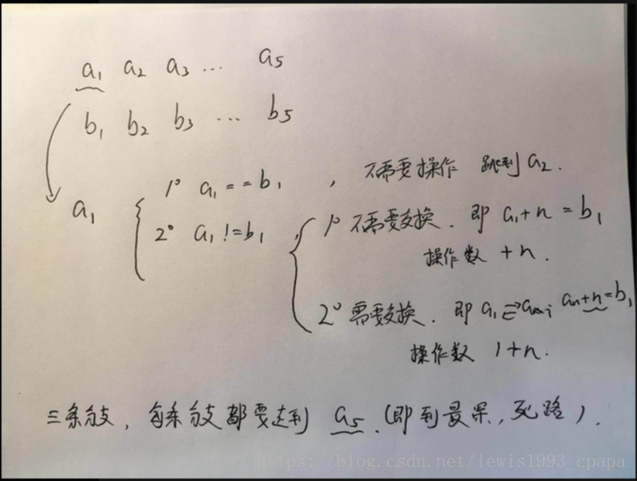 a1 a2 a3 ... a5
b1 b2 b3 ... b5
a1
1° a1 == b1 , 不需要操作 跳到 a2.
2° a1 != b1
1° 不需要交换. 即 a1+n = b1
操作数 +n.
2° 需要交换. 即 a1 an+n=b1
操作数 1+n.
三条分支, 每条分支都要达到 a5 (即到最深, 死路).
https://blog.csdn.net/lewis1993_cpapa